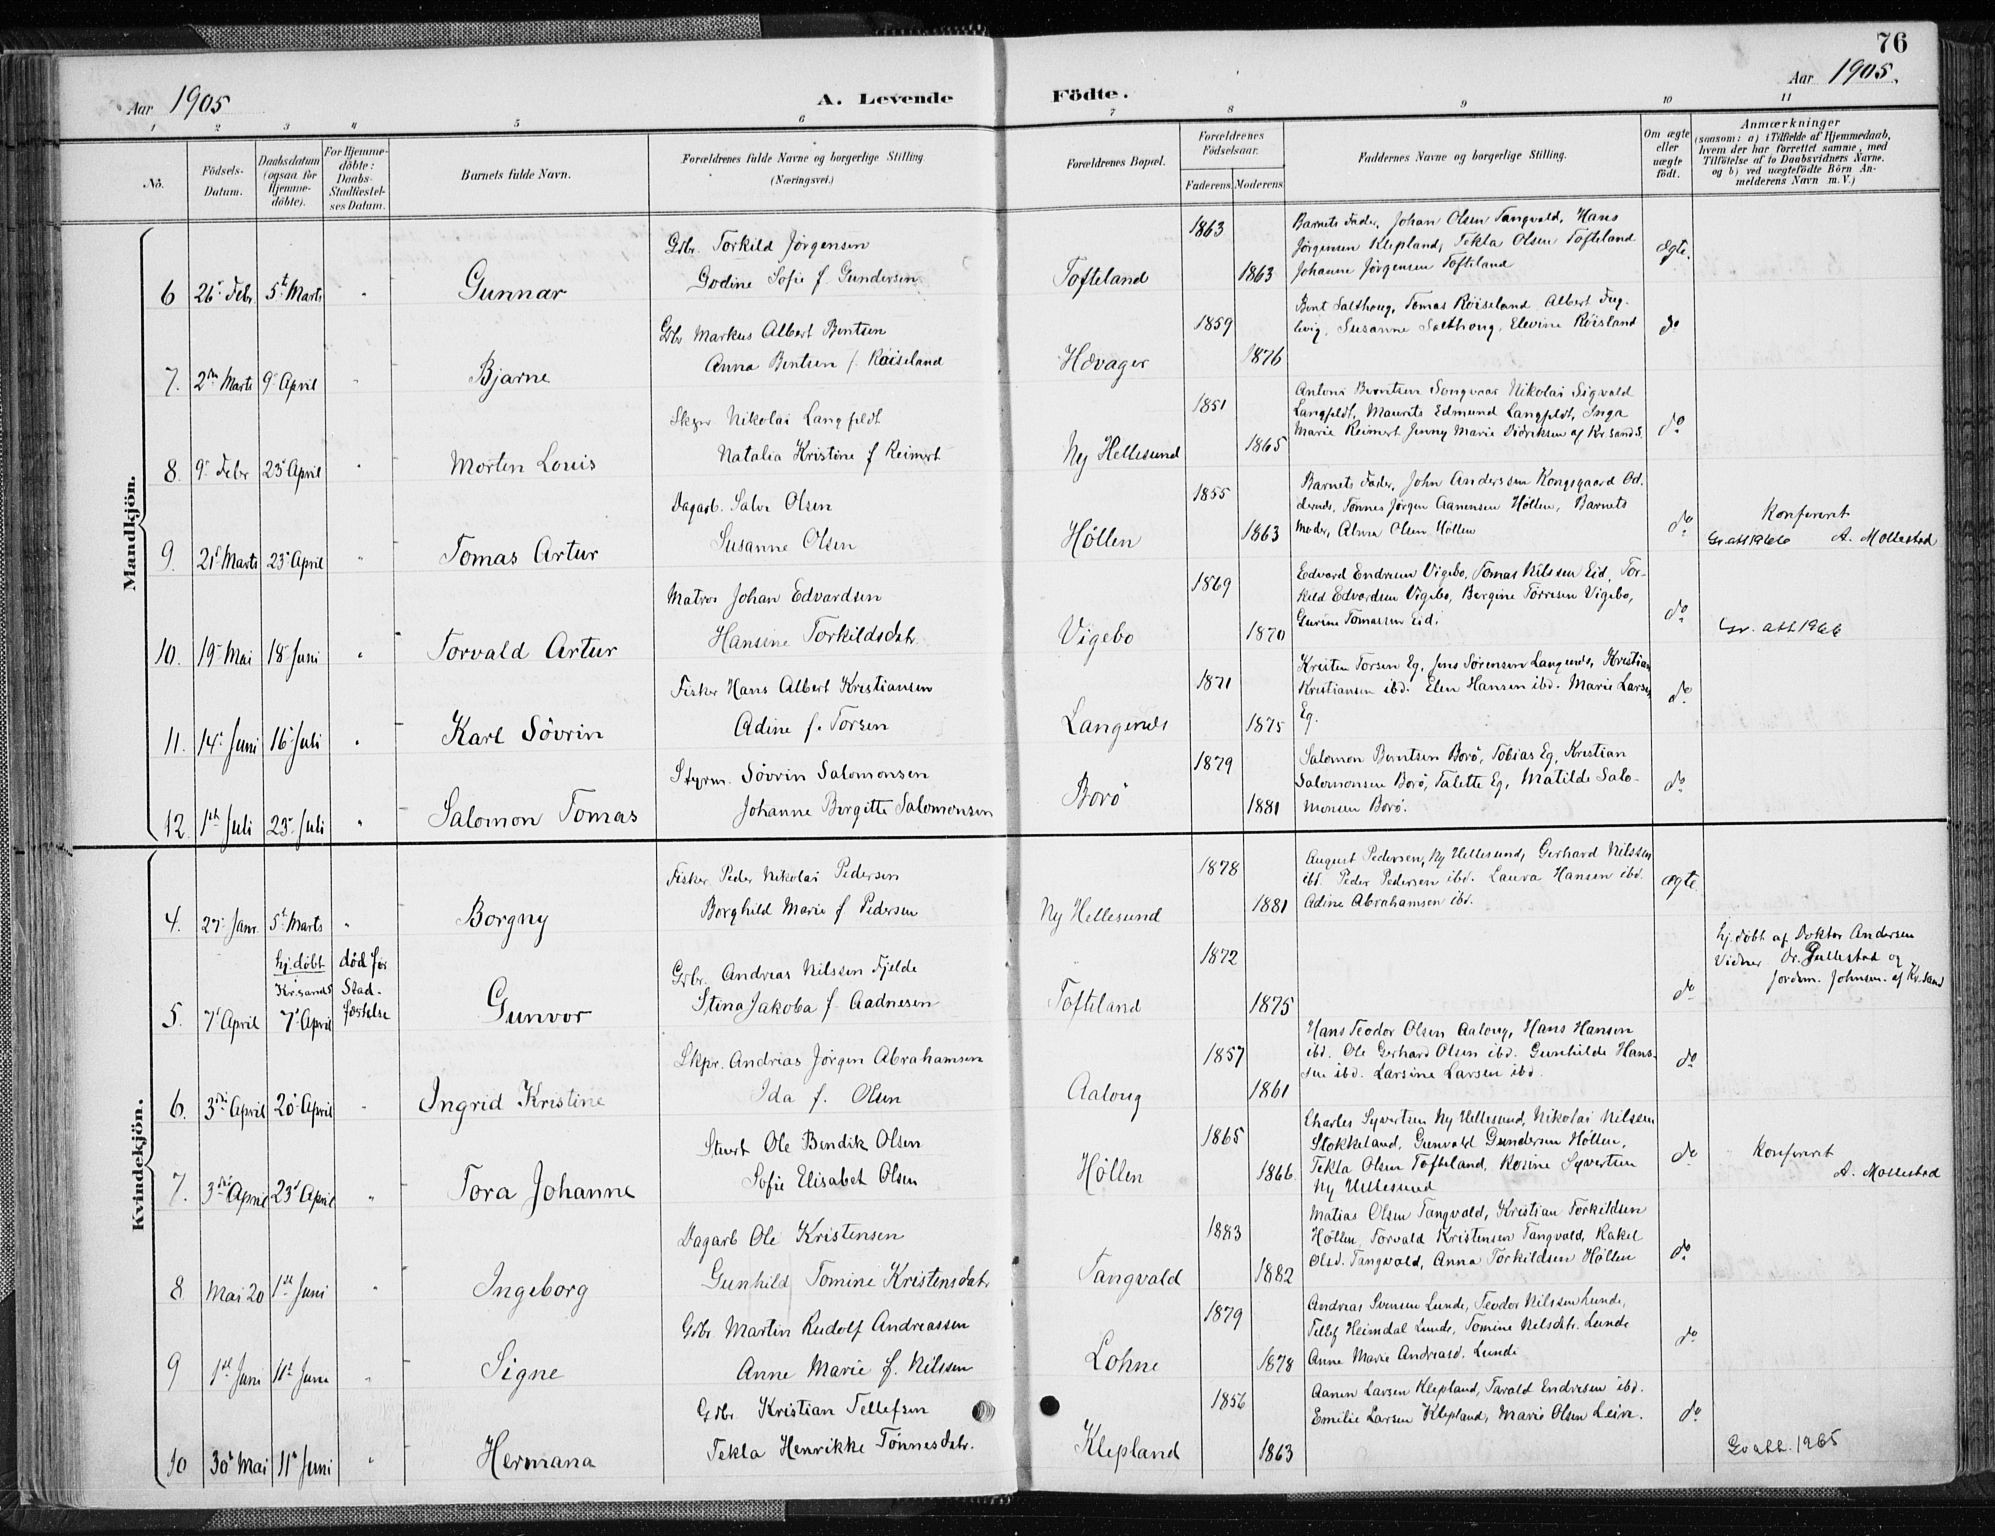 76
Aar 1905
A. Levende Födte.
Aar 1905.
1 2 3 4 5 6 7 8 9 10 11
No.
Födsels-Datum.
Daabsdatum (ogsaa for Hjemme-döbte).
For Hjemme-döbte: Daabs-Stadfæstel-ses Datum.
Barnets fulde Navn.
Forældrenes fulde Navne og borgerlige Stilling (Næringsvei.)
Forældrenes Bopæl.
Forældrenes Födselsaar.
Faderens. Moderens.
Faddernes Navne og borgerlige Stilling.
Om ægte eller uægte födt.
Anmærkninger
(saasom: a) i Tilfælde af Hjemmedaab,
hvem der har forrettet samme, med
Tilföielse af to Daabsvidners Navne.
og b) ved uægtefödte Börn An-
melderens Navn m. V.)
Mandkjön.
6 26' Febr 5t Marts " Gunnar
Gbr. Torkild Jørgensen
Godine Sofie f. Gundersen
Tofteland
1863
1863
Barnets Fader, Johan Olsen Tangvald, Hans
Jørgensen Klepland, Tekla Olsen Tofteland
Johanne Jørgensen Tofteland
ægte.
7. 2den Marts 9' April " Bjarne
Gbr Markus Albert Bentsen
Anna Bentsen f. Røiseland
Hævager
1859
1876
Bent Salthoug, Tomas Røiseland Albert Fug-
levig, Susanne Salthoug, Elevine Røisland
do
8. 9' Febr 23' April " Morten Louis
Skpr Nikolai Langfeldt
Natalia Kristine f Reimert
Ny Hellesund
1851
1865
Antoni Berntsen Songvaar Nikolai Sigvald
Langfeldt, Maurits Edmund Langfeldt, Inga
Marie Reimert Jenny Marie Didriksen af Kr.sand S.
do
9. 21' Marts 23' April " Tomas Artur
Dagarb. Salve Olsen
Susanne Olsen
Høllen
1855
1863
Barnets Fader, John Anderssen Kongsgaard Od-
dernes, Tønnes Jørgen Aanensen Høllen, Barnets
Moder, Alma Olsen Høllen
do
Konfereret
A. Mollestad
10. 19' Mai 18' Juni " Torvald Artur
Matros Johan Edvardsen
Hansine Torkildsdtr
Vigebo
1869
1870
Edvard Endresen Vigebo, Tomas Nilssen Eid, Tor-
kild Edvardsen Vigebo, Bergine Torresen Vigebo,
Gurine Tomassen Eid.
do
Gr. att 1966
11. 14' Juni 16' Juli " Karl Sövrin
Fisker Hans Albert Kristiansen
Adine f. Torsen
Langenes
1871
1875
Kristen Torsen Eg, Jens Sørensen Langenes, Kristian
Kristiansen ibd. Elen Hansen ibd. Marie Larsen
Eg.
do
12. 1ste Juli 23' Juli " Salomon Tomas
Styrm. Sövrin Salomonsen
Johanne Borgitte Salomonsen
Borø
1879
1881
Salomon Berntsen Borø, Tobias Eg, Kristian
Salomonsen Borø, Talette Eg, Matilde Salo-
monsen Borø.
do
Kvindekjön.
4. 27' Janr. 5t Marts " Borgny
Fisker Peder Nikolai Pedersen
Borghild Marie f Pedersen
Ny Hellesund
1878
1881
August Pedersen, Ny Hellesund, Gerhard Nilssen
ibd. Peder Pedersen ibd. Laura Hansen ibd.
Adine Abrahamsen ibd.
ægte
5. 7' April
hj. døbt
Kr.sands
7' April
død før
Stad-
fæstelse
Gunvor
Gbr. Andreas Nilssen Fjelde
Stina Jakoba f. Aadnesen
Tofteland
1872
1875
do
hj. døbt af Doktor Andersen
Vidner Dr. Gullestad og
Jordm. Johnsen. af Kr.sand
6. 3die April 20' April " Ingrid Kristine
Skpr. Andreas Jørgen Abrahamsen
Ida f. Olsen
Aaloug
1857
1861
Hans Teodor Olsen Aaloug, Hans Hansen
ibd. Ole Gerhard Olsen ibd. Gunhilde Hans-
sen ibd. Larsine Larsen ibd.
do
7. 3die April 23' April " Tora Johanne
Stuert Ole Bendik Olsen
Sofie Elisabet Olsen
Høllen
1865
1866
Charles Syvertsen Ny Hellesund, Nikolai Nilssen
Stokkeland, Gunvald Gundersen Høllen,
Tekla Olsen Tofteland, Rosine Syvertsen
Ny Hellesund
do
Konfereret
A. Mollestad
8 Mai 20 1ste Juni " Ingeborg
Dagarb Ole Kristensen
Gunhild Tomine Kristensdatr
Tangvald
1883
1882
Matias Olsen Tangvald, Kristian Torkildsen
Høllen, Torvald Kristensen Tangvald, Rakel
Olsd. Tangvald, Anna Torkildsen Høllen
do
9 1ste Juni 11te Juni " Signe
Gbr. Martin Rudolf Andreassen
Anne Marie f. Nilssen
Lohne
1879
1878
Andreas Svensen Lunde, Teodor Nilssen Lunde,
Tellef Heimdal Lunde, Tomine Nilsdtr. Lunde
Anne Marie Andreasd. Lunde
do
10 30' Mai 11' Juni " Hermana
Gbr. Kristian Tellefsen
Tekla Henrikke Tønnesdatr.
Klepland
1856
1863
Aanen Larsen Klepland, Tarald Endresen ibd.
Emilie Larsen Klepland, Marie Olsen Leire.
do
Gr att. 1965